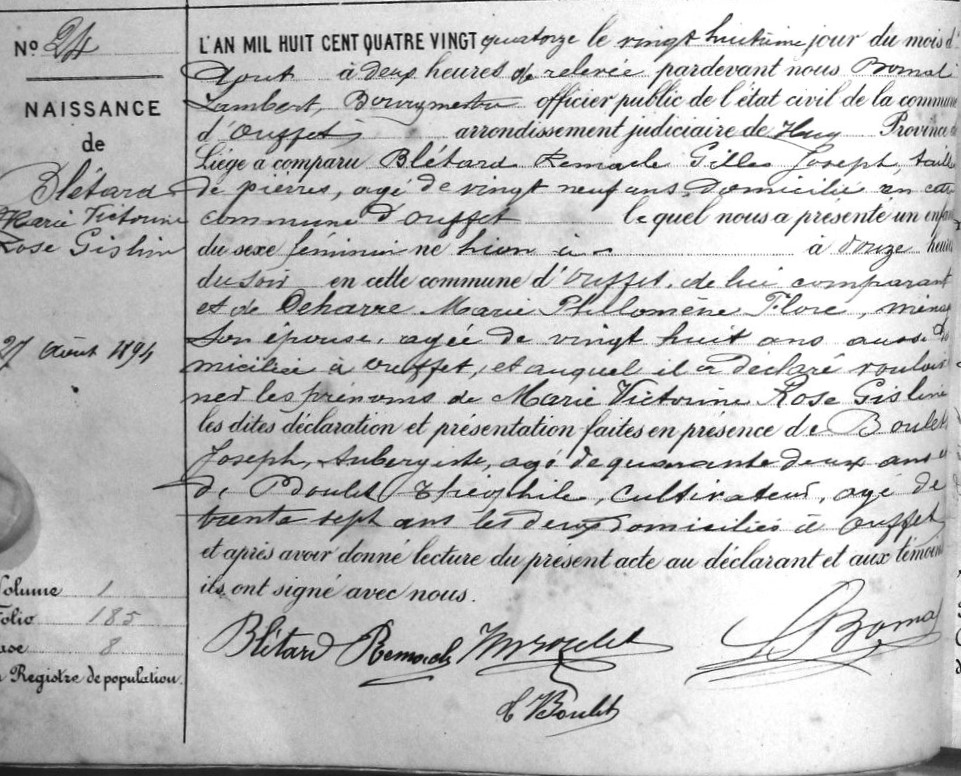 No 24
NAISSANCE
de
Blétard
Marie Victorine
Rose Gisline
27 Août 1894
Volume 1
Folio 185
Case 8
Registre de population.
L'AN MIL HUIT CENT QUATRE VINGT quatorze le vingt huitième jour du mois d'
Août à deux heures de relevée pardevant nous Bomal
Lambert, Bourgmestre officier public de l'état civil de la commune
d'Ouffet, arrondissement judiciaire de Huy Province de
Liége a comparu Blétard Remacle Gilles Joseph, taille
de pierres, agé de vingt neuf ans, domicilié en cette
commune d'Ouffet lequel nous a présenté un enfant
du sexe feminin né hier à douze heures
du soir en cette commune d'Ouffet, de lui comparant
et de Deharre Marie Philomène Flore, ménag
son épouse, agée de vingt huit ans aussi do
miciliée à Ouffet, et auquel il a déclaré vouloir
ner les prénoms de Marie Victorine Rose Gisline
les dites déclaration et présentation faites en présence de Boulet
Joseph, Aubergiste, agé de quarante deux ans et
de Boulet Théophile, cultivateur, agé de
trente sept ans les deux domiciliés à Ouffet
et après avoir donné lecture du présent acte au déclarant et aux témoins
ils ont signé avec nous.
Blétard Remacle Boulet L Bomal
T Boulet